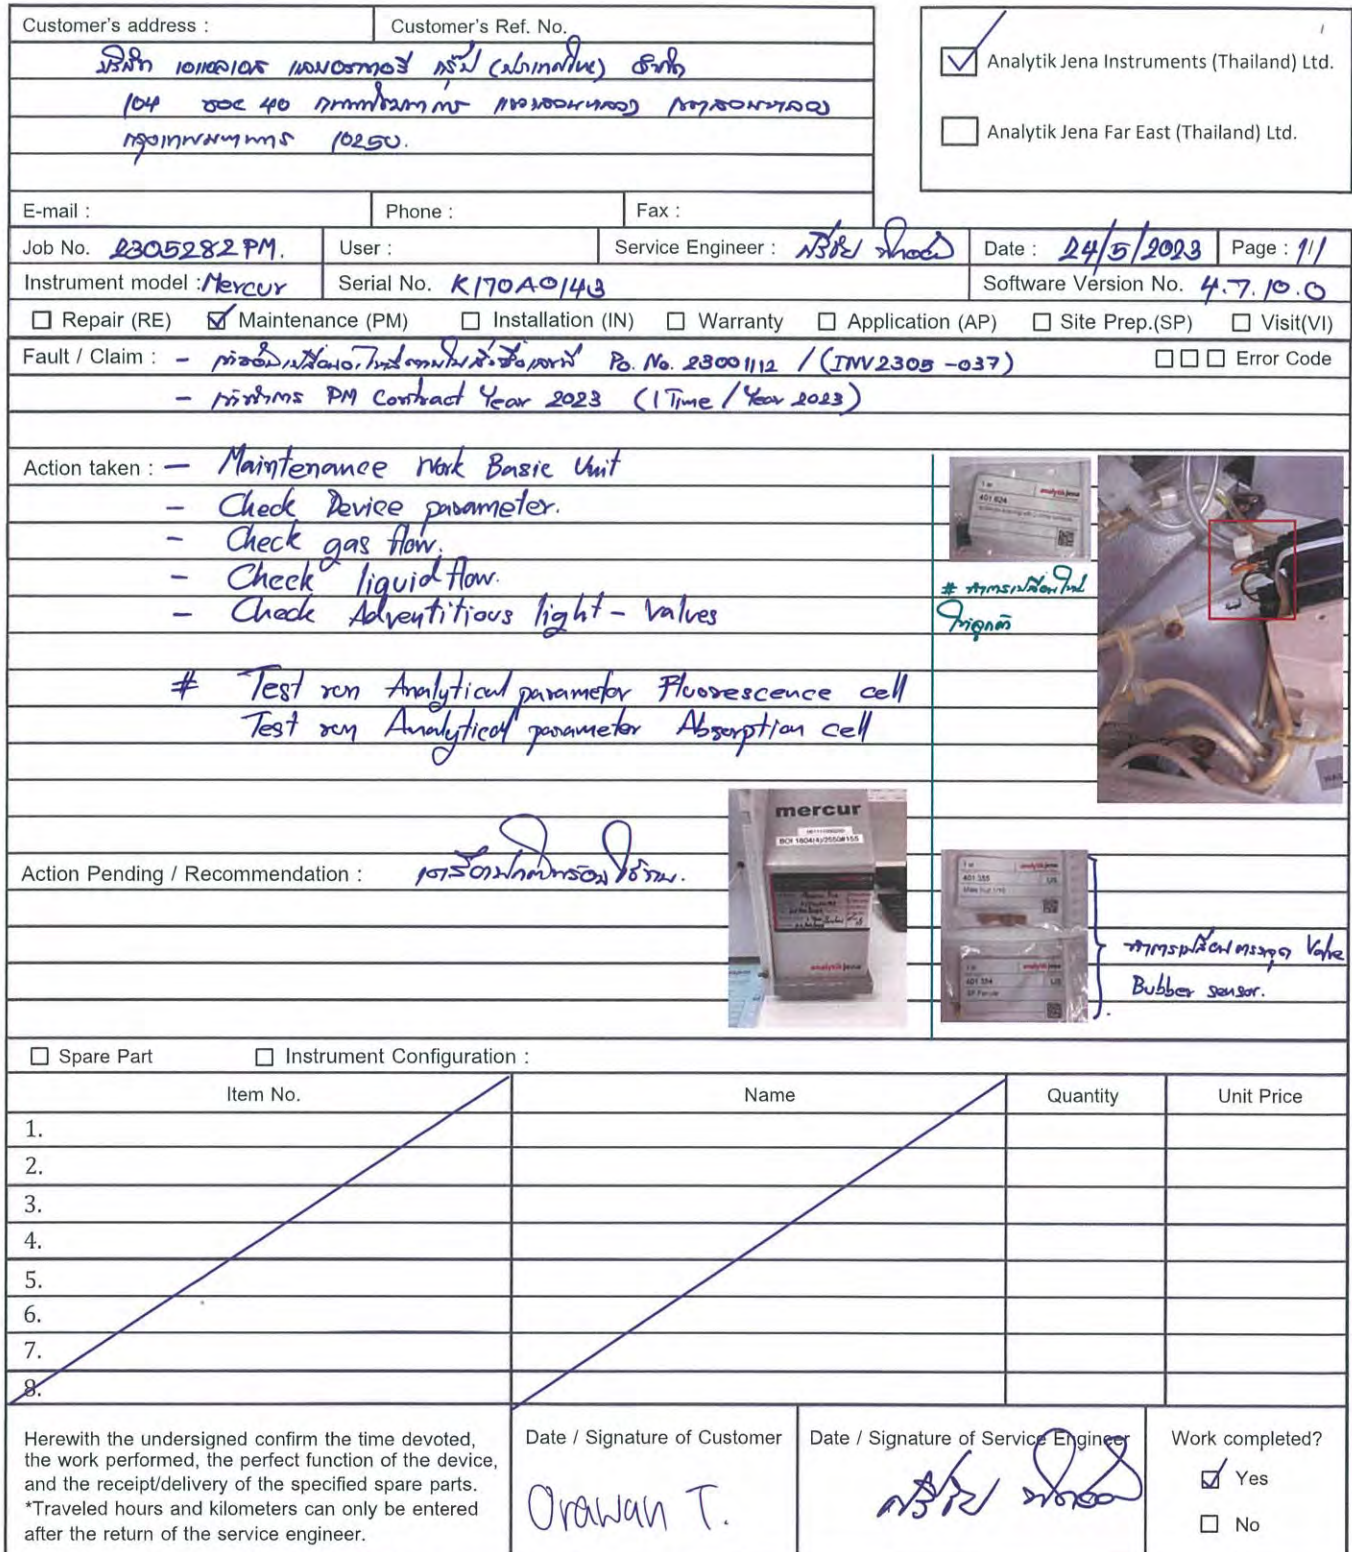 Customer's address : Customer's Ref. No.
บริษัท เอแอลเอส แลบอราทอรี่ กรุ๊ป (ประเทศไทย) จำกัด
104 ซอย 40 ถนนพัฒนาการ แขวงสวนหลวง เขตสวนหลวง
กรุงเทพมหานคร 10250.
Analytik Jena Instruments (Thailand) Ltd.
Analytik Jena Far East (Thailand) Ltd.
E-mail : Phone : Fax :
Job No. 2305282PM. User : Service Engineer : Date : 24/5/2023 Page : 1/1
Instrument model : Mercur Serial No. K170A0143 Software Version No. 4.7.10.0
Repair (RE) Maintenance (PM) Installation (IN) Warranty Application (AP) Site Prep.(SP) Visit(VI)
Fault / Claim : - PO. No. 23001112 / (INV2305-037) Error Code
- PM Contract Year 2023 (1 Time / Year 2023)
Action taken : - Maintenance Work Basic Unit
- Check Device parameter.
- Check gas flow.
- Check liquid flow.
- Check Adventitious light - Valves
# Test run Analytical parameter Fluorescence cell
Test run Analytical parameter Absorption cell
analytikjena
401 824
# ทำการเปลี่ยนใหม่
ให้ลูกค้า
mercur
analytikjena
Action Pending / Recommendation : เครื่องปกติพร้อมใช้งาน.
analytikjena
401 355 US
analytikjena
401 354 US
ทำการเปลี่ยน Valve
Bubber sensor.
Spare Part Instrument Configuration :
Item No. Name Quantity Unit Price
1.
2.
3.
4.
5.
6.
7.
8.
Herewith the undersigned confirm the time devoted,
the work performed, the perfect function of the device,
and the receipt/delivery of the specified spare parts.
*Traveled hours and kilometers can only be entered
after the return of the service engineer.
Date / Signature of Customer
Orawan T.
Date / Signature of Service Engineer
Work completed?
Yes
No